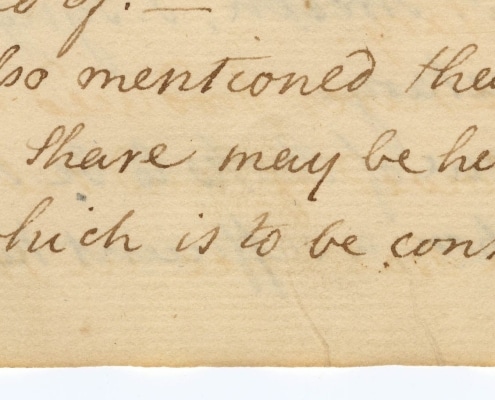 of. —
lso mentioned the
Share may be he
which is to be cons